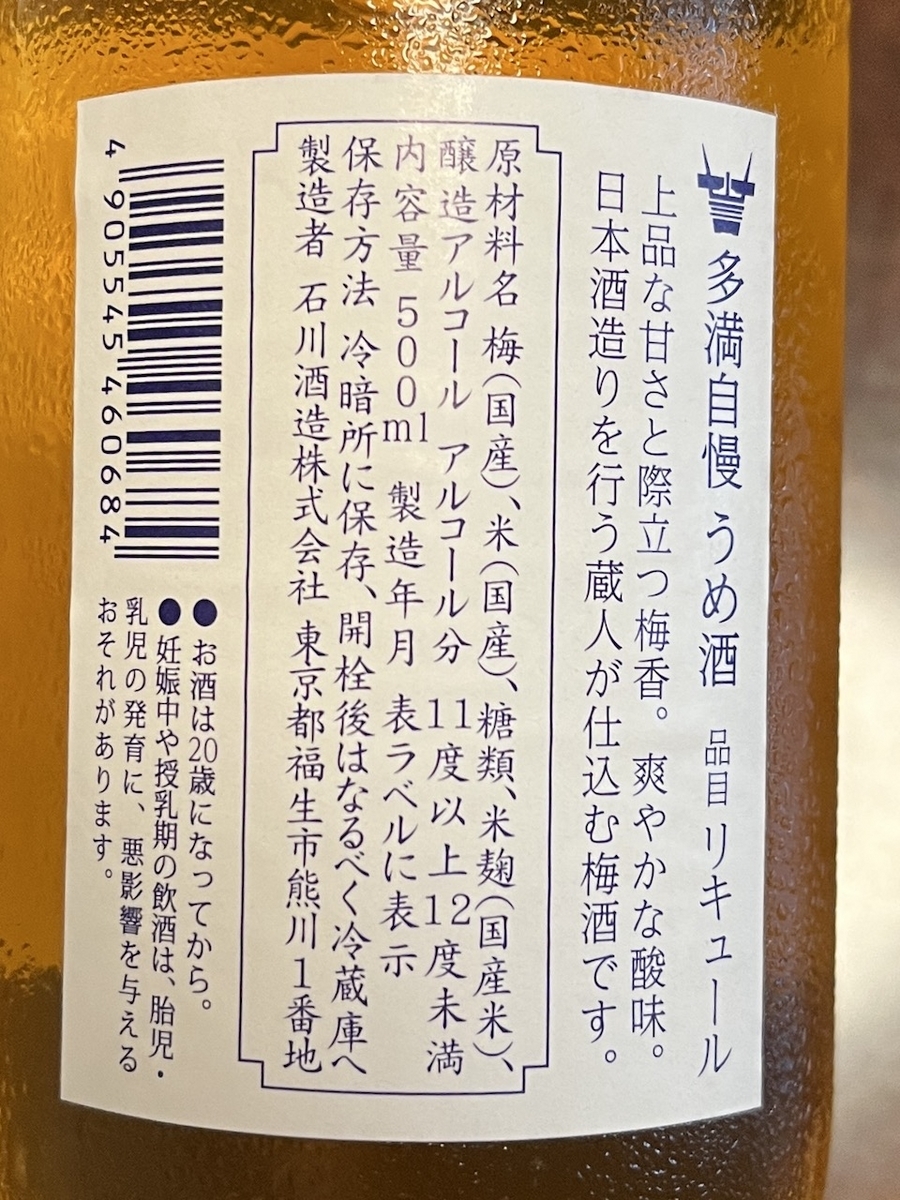 多満自慢 うめ酒 品目 リキュール
上品な甘さと際立つ梅香。爽やかな酸味。
日本酒造りを行う蔵人が仕込む梅酒です。
原材料名 梅(国産)、米(国産)、糖類、米麹(国産米)、
醸造アルコール アルコール分 11度以上12度未満
内容量 500ml 製造年月 表ラベルに表示
保存方法 冷暗所に保存、開栓後はなるべく冷蔵庫へ
製造者 石川酒造株式会社 東京都福生市熊川1番地
4 905545 460684
●お酒は20歳になってから。
●妊娠中や授乳期の飲酒は、胎児・
乳児の発育に、悪影響を与える
おそれがあります。